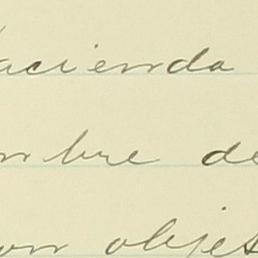 acienda
mbre de
on objet